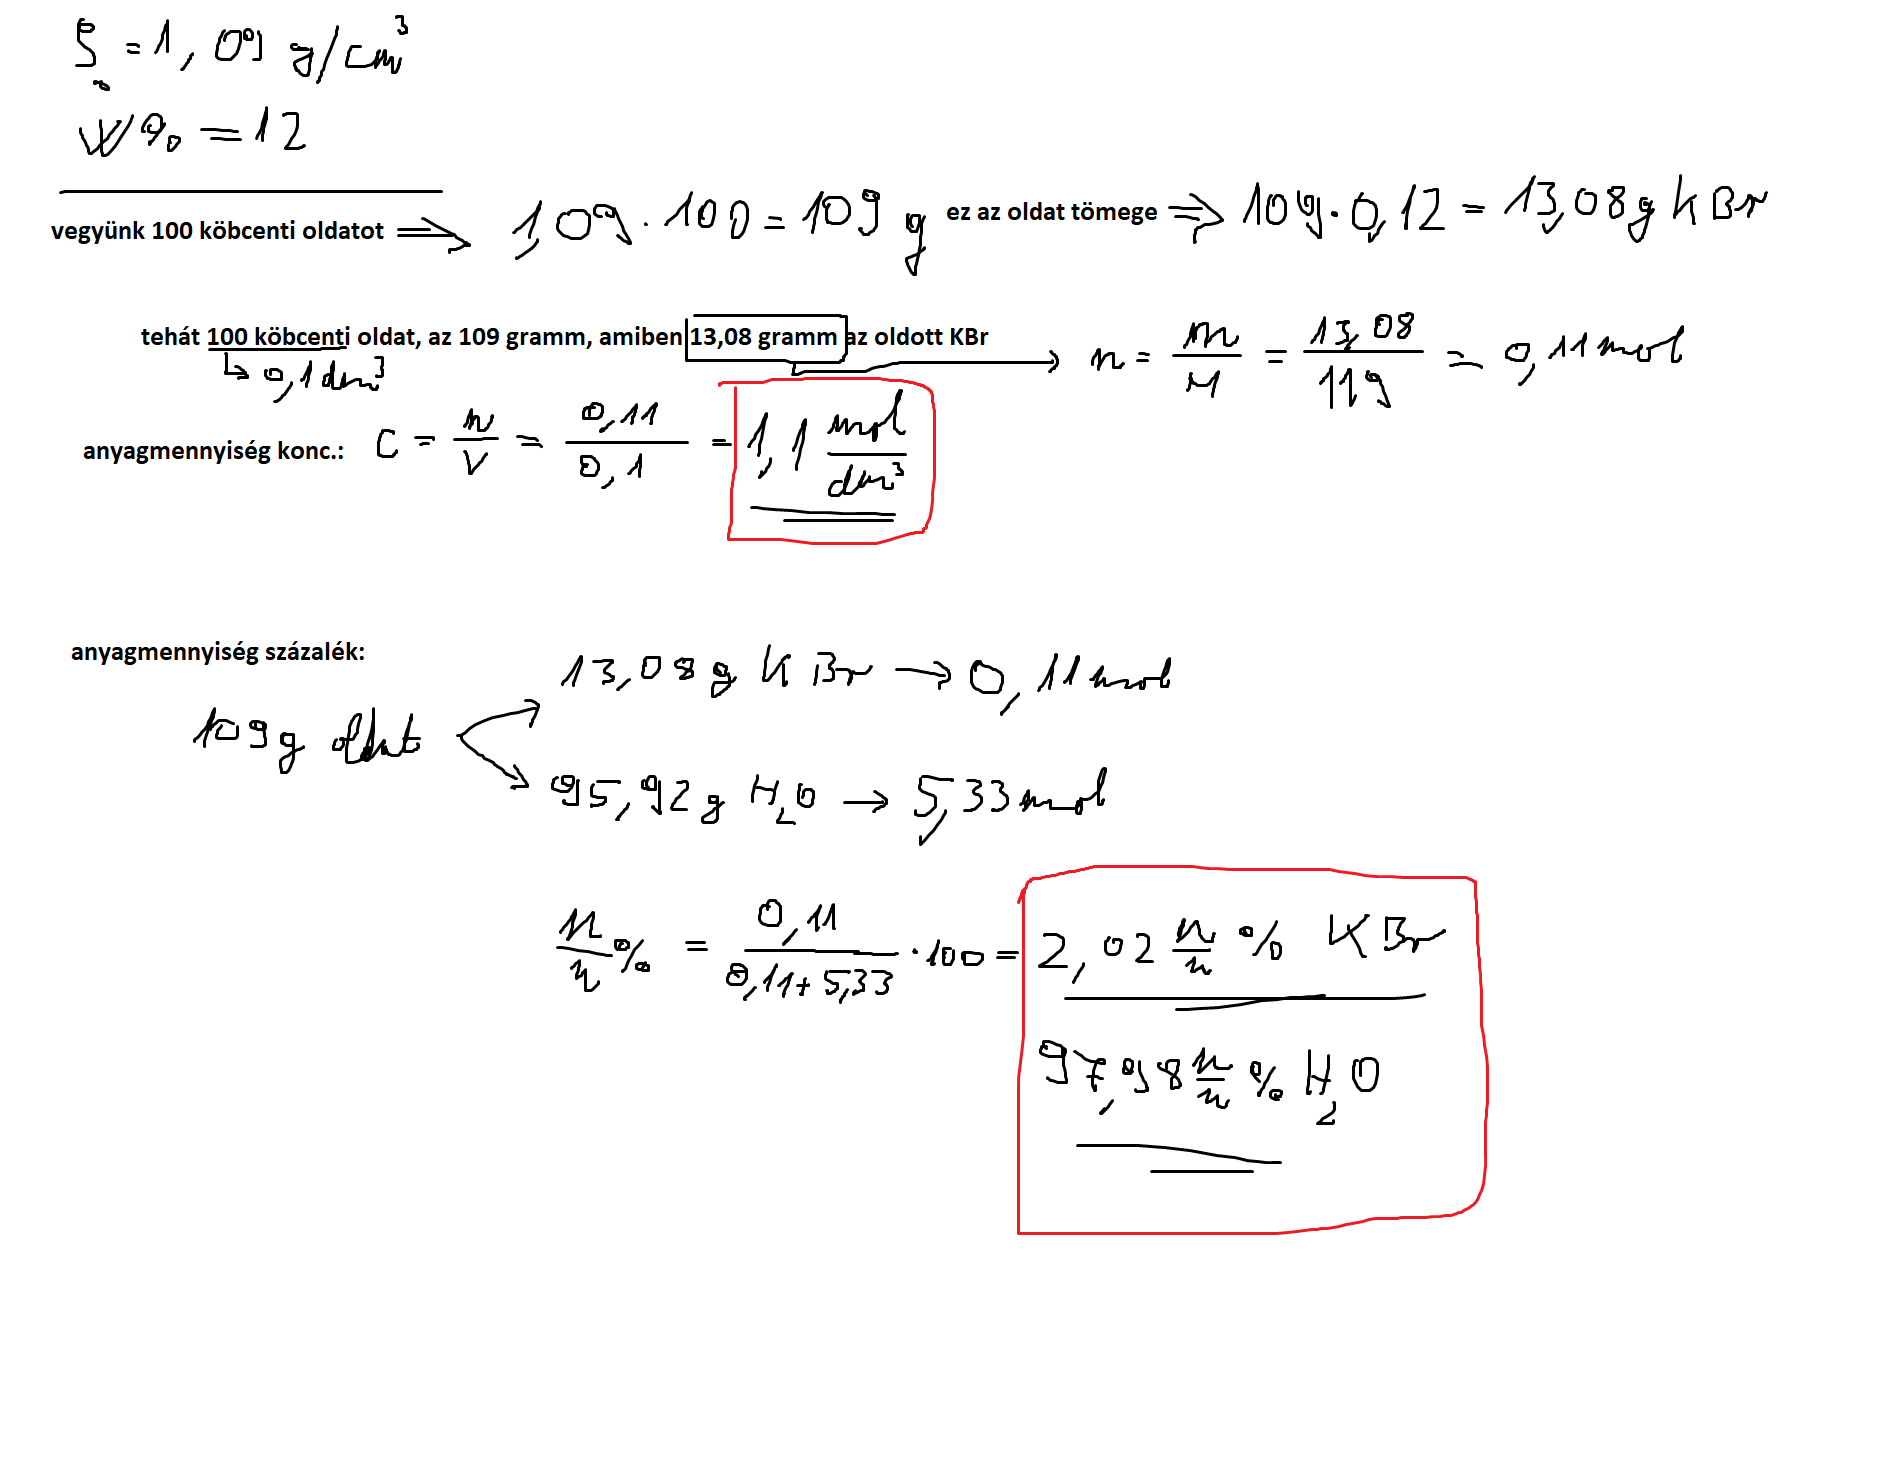 ρ = 1,09 g/cm³
w% = 12
vegyünk 100 köbcenti oldatot ⇒ 1,09 · 100 = 109 g ez az oldat tömege ⇒ 109 · 0,12 = 13,08 g KBr
tehát 100 köbcenti oldat, az 109 gramm, amiben 13,08 gramm az oldott KBr → n = m/M = 13,08/119 = 0,11 mol
↳ 0,1 dm³
anyagmennyiség konc.: c = n/V = 0,11/0,1 = 1,1 mol/dm³
anyagmennyiség százalék:
13,08 g KBr → 0,11 mol
109 g oldat
95,92 g H₂O → 5,33 mol
n/n % = 0,11/(0,11 + 5,33) · 100 = 2,02 n/n % KBr
97,98 n/n % H₂O